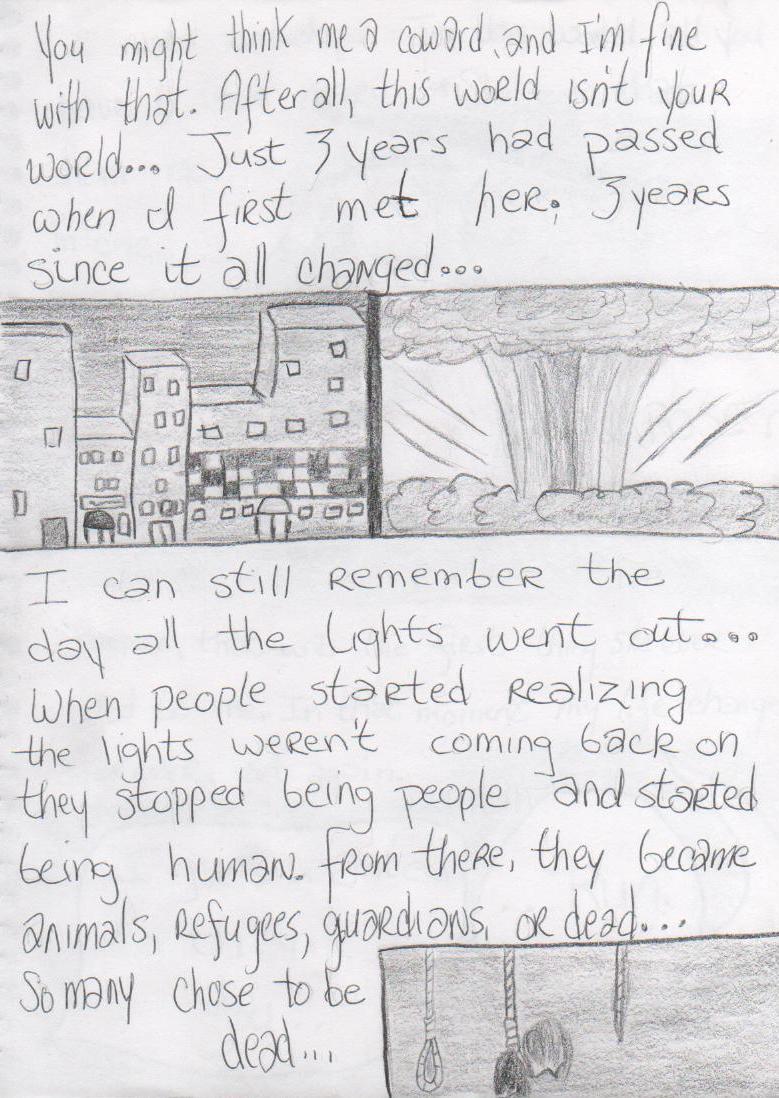 You might think me a coward, and I'm fine
with that. After all, this world isn't your
world... Just 3 years had passed
when I first met her; 3 years
since it all changed...
I can still remember the
day all the lights went out...
When people started realizing
the lights weren't coming back on
they stopped being people and started
being human. From there, they became
animals, refugees, guardians, or dead...
So many chose to be
dead...